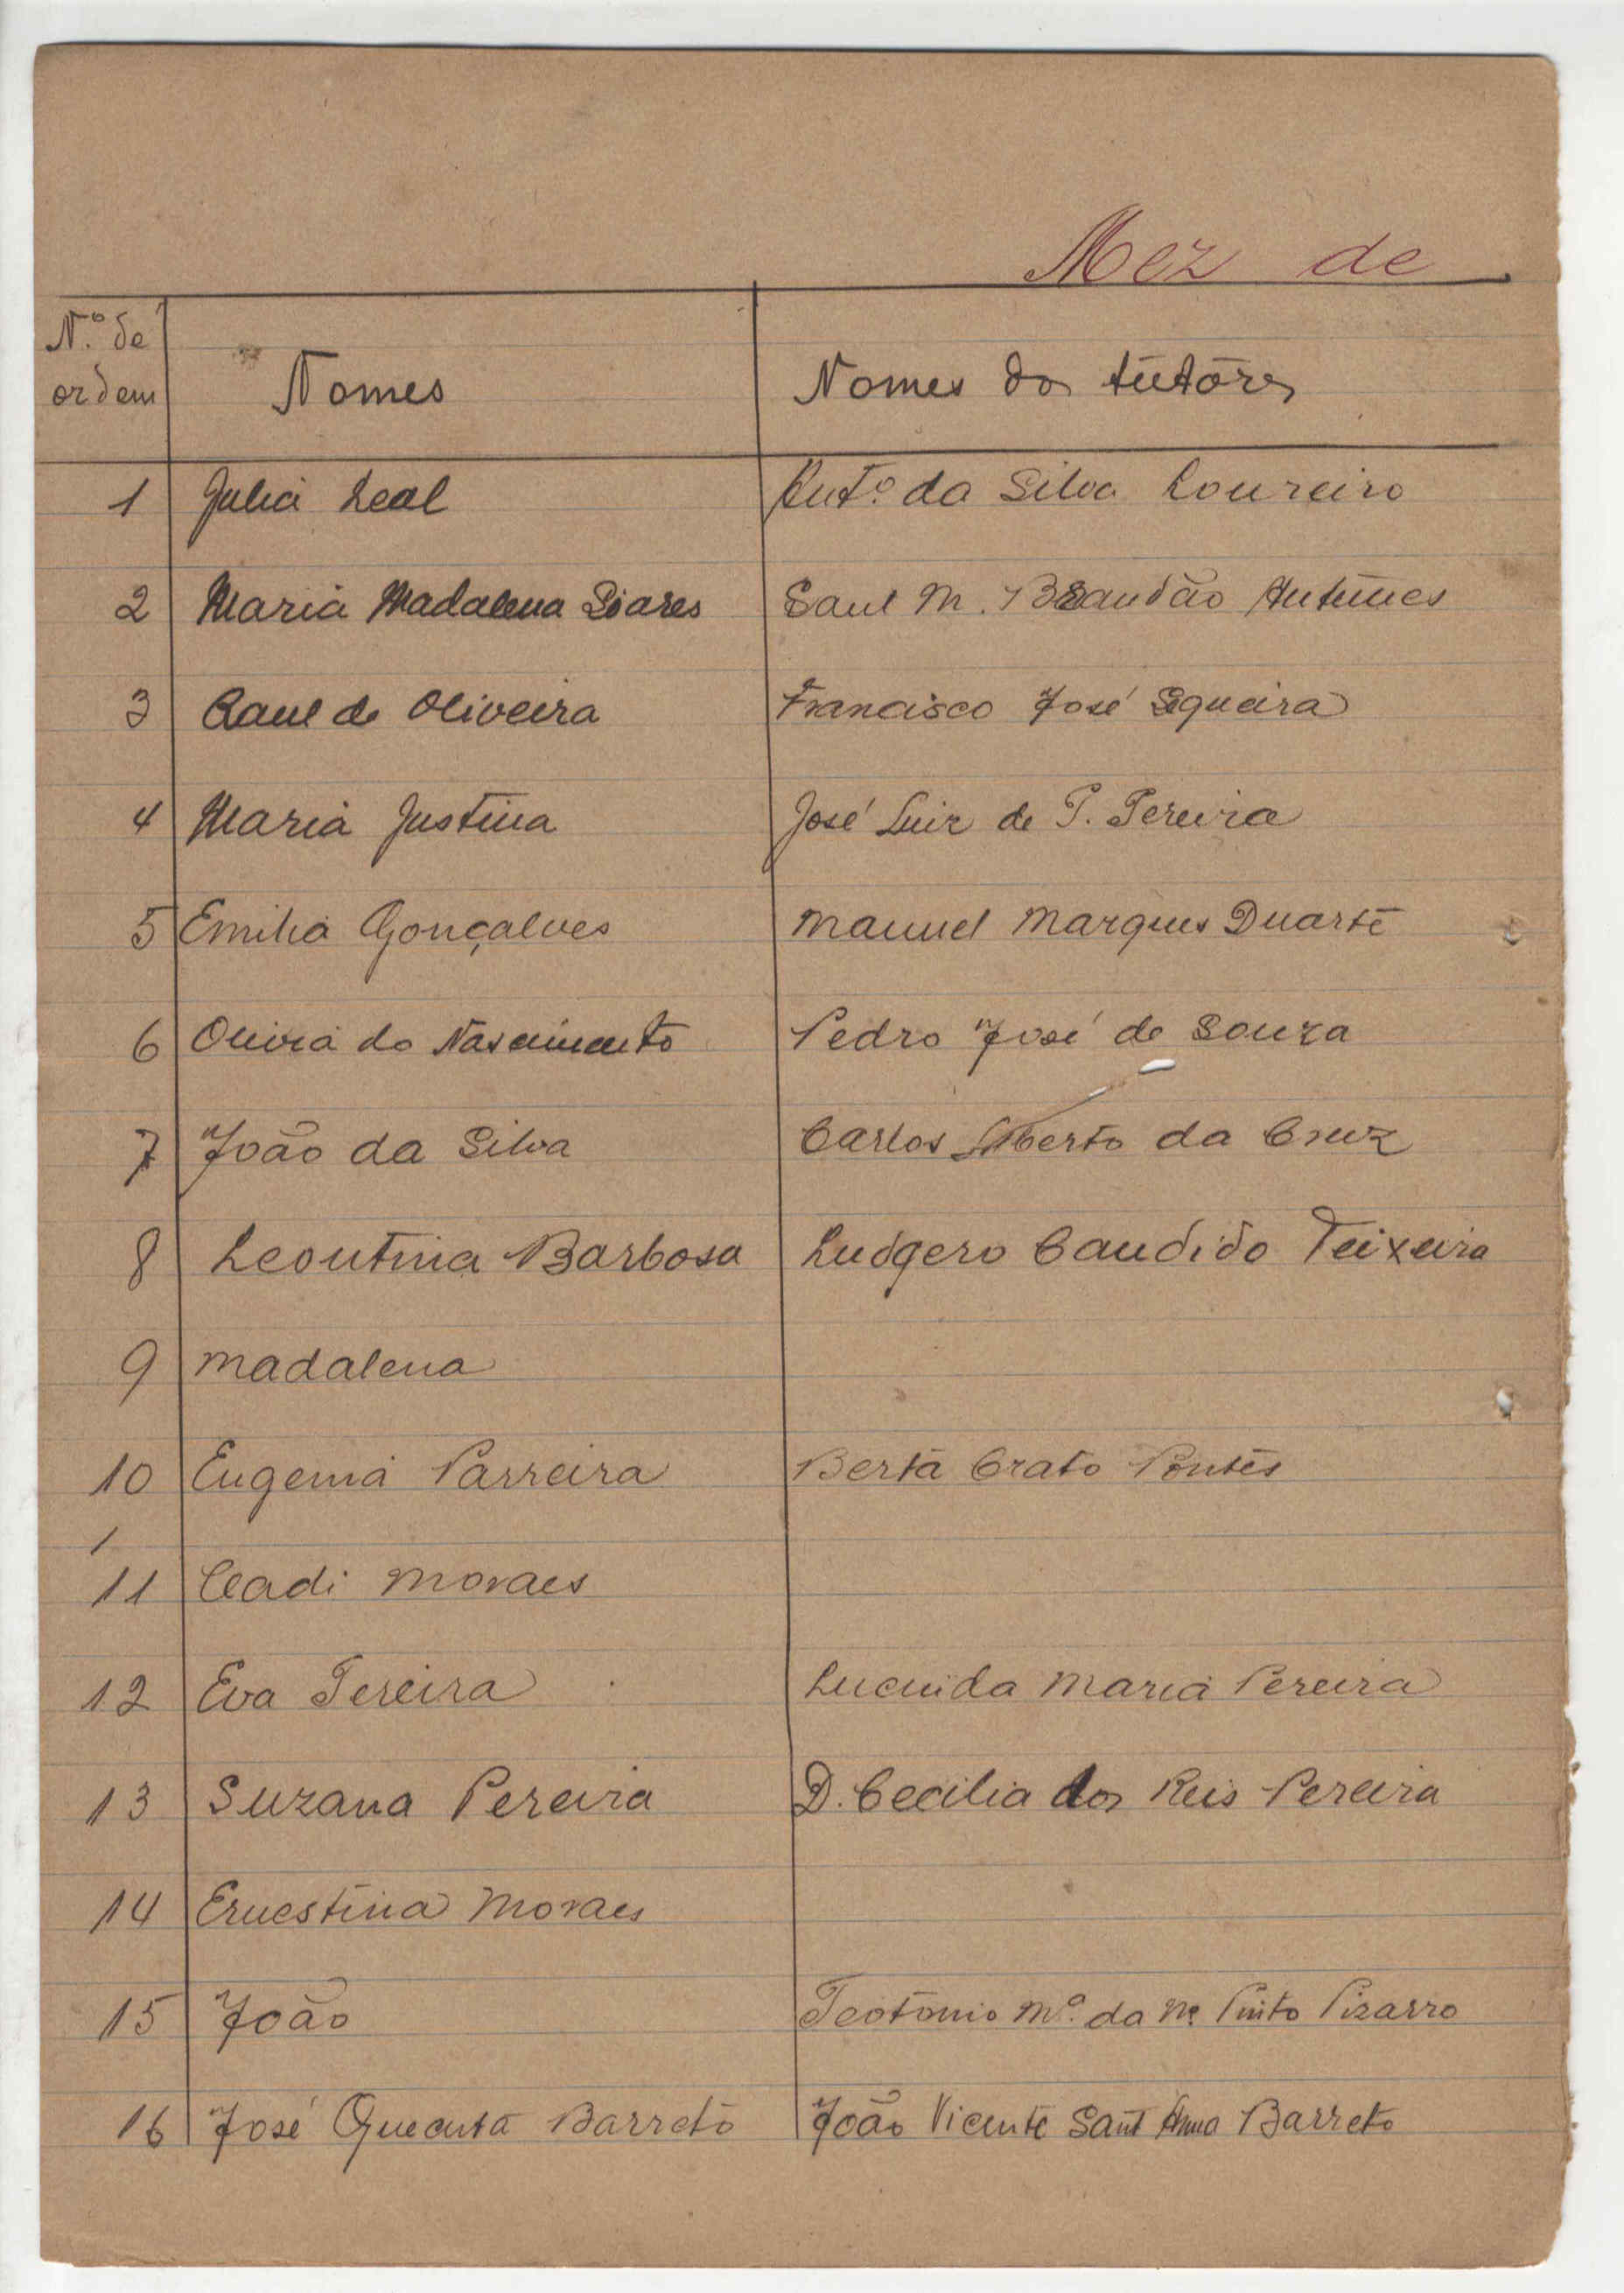 Mez de
N.º de
ordem
Nomes
Nomes dos tutôres
1 Julia Leal Antº. da Silva Loureiro
2 Maria Madalena Soares Saul M. Brandão Antunes
3 Raul de Oliveira Francisco José Sequeira
4 Maria Justina José Luiz de P. Pereira
5 Emilia Gonçalves Manuel Marques Duarte
6 do Nascimento Pedro José de Souza
7 João da Silva Carlos Alberto da Cruz
8 Leontina Barbosa Ludgero Candido Teixeira
9 Madalena
10 Eugenia Parreira Berta Crato Pontes
1
11 Moraes
12 Eva Pereira Lucinda Maria Pereira
13 Suzana Pereira D. Cecilia dos Reis Pereira
14 Ernestina Moraes
15 João Teotonio Mª. da Pinto Pizarro
16 José Quecuta Barreto João Vicente Sant Anna Barreto